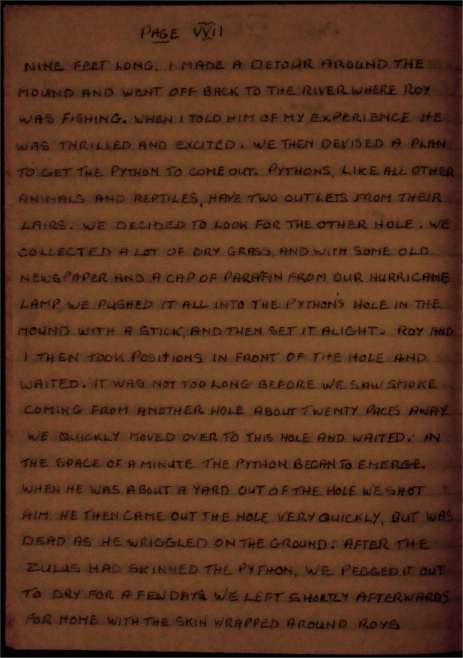 PAGE VVII
NINE FEET LONG. I MADE A DETOUR AROUND THE
MOUND AND WENT OFF BACK TO THE RIVER WHERE ROY
WAS FISHING. WHEN I TOLD HIM OF MY EXPERIENCE HE
WAS THRILLED AND EXCITED. WE THEN DEVISED A PLAN
TO GET THE PYTHON TO COME OUT. PYTHONS, LIKE ALL OTHER
ANIMALS AND REPTILES, HAVE TWO OUTLETS FROM THEIR
LAIRS. WE DECIDED TO LOOK FOR THE OTHER HOLE. WE
COLLECTED A LOT OF DRY GRASS, AND WITH SOME OLD
NEWSPAPER AND A CAP OF PARAFIN FROM OUR HURRICANE
LAMP, WE PUSHED IT ALL INTO THE PYTHON'S HOLE IN THE
MOUND WITH A STICK, AND THEN SET IT ALIGHT. ROY AND
I THEN TOOK POSITIONS IN FRONT OF THE HOLE AND
WAITED. IT WAS NOT TOO LONG BEFORE WE SAW SMOKE
COMING FROM ANOTHER HOLE ABOUT TWENTY PACES AWAY
WE QUICKLY MOVED OVER TO THIS HOLE AND WAITED. IN
THE SPACE OF A MINUTE THE PYTHON BEGAN TO EMERGE.
WHEN HE WAS ABOUT A YARD OUT OF THE HOLE WE SHOT
HIM. HE THEN CAME OUT THE HOLE VERY QUICKLY, BUT WAS
DEAD AS HE WRIGGLED ON THE GROUND. AFTER THE
ZULUS HAD SKINNED THE PYTHON, WE PEGGED IT OUT
TO DRY FOR A FEW DAYS WE LEFT SHORTLY AFTERWARDS
FOR HOME WITH THE SKIN WRAPPED AROUND ROYS